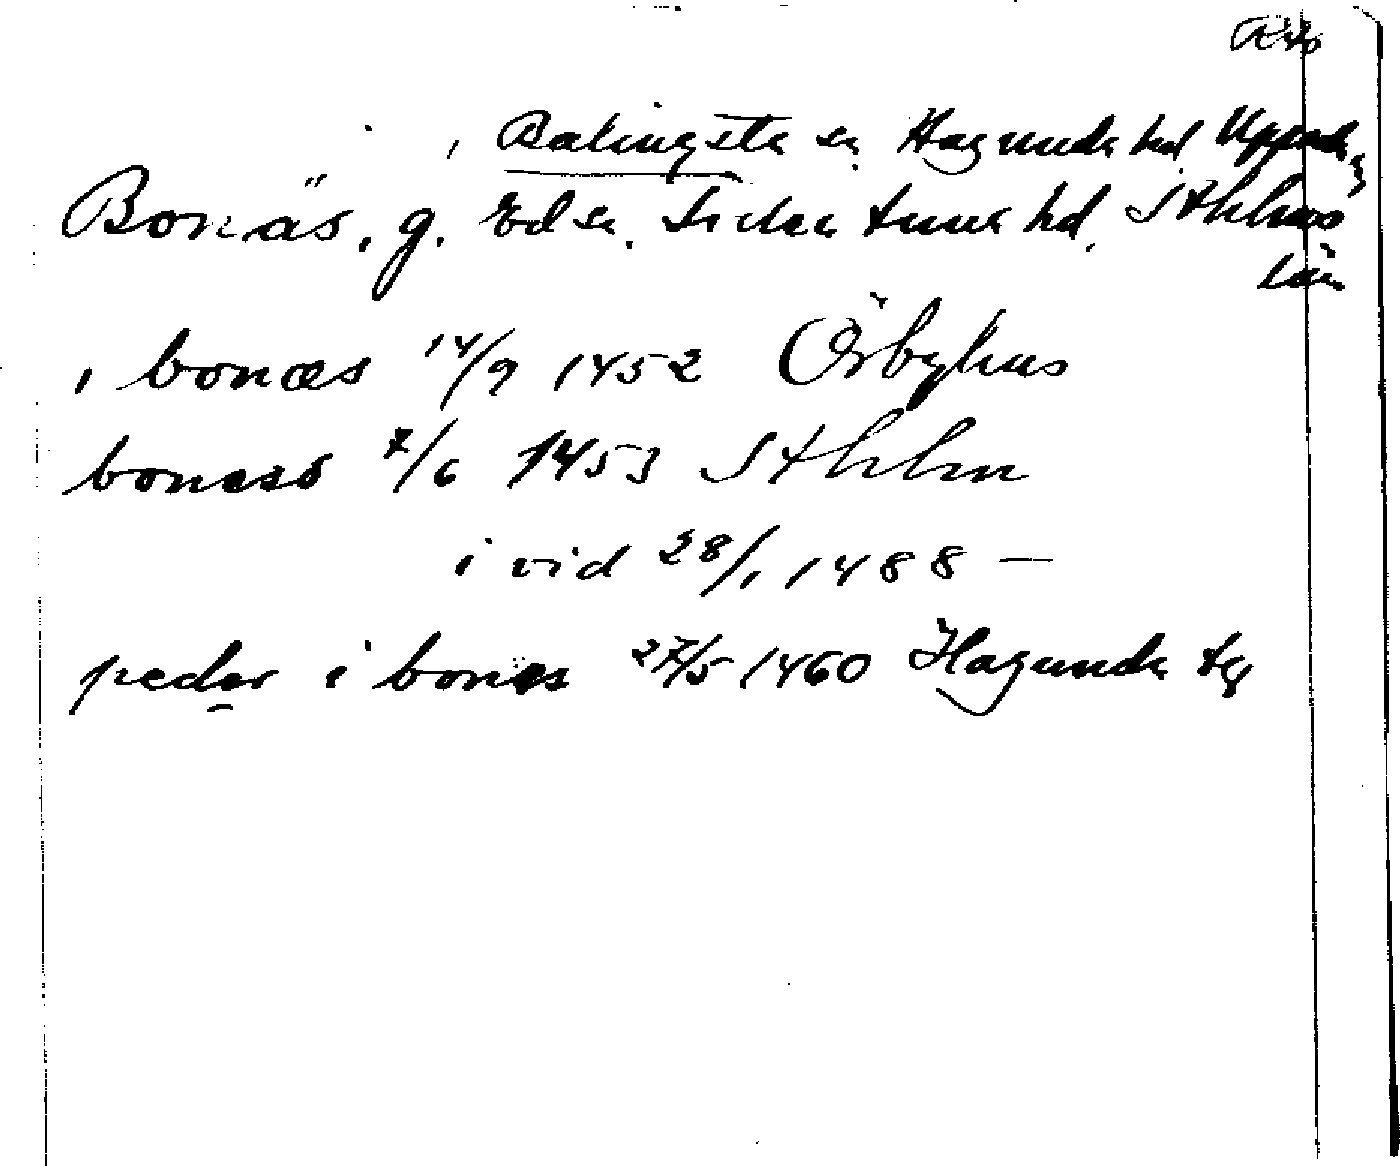 , Balingsta sn Hagunda hd Uppsala
Bonäs, g. Ed sn. Sollentuna hd, Sthlms
län
i bonæs 14/9 1452 Örbyhus
boness 7/6 1453 Sthlm
i vid 28/1 1488 —
peder i bones 27/5 1460 Hagunda tg